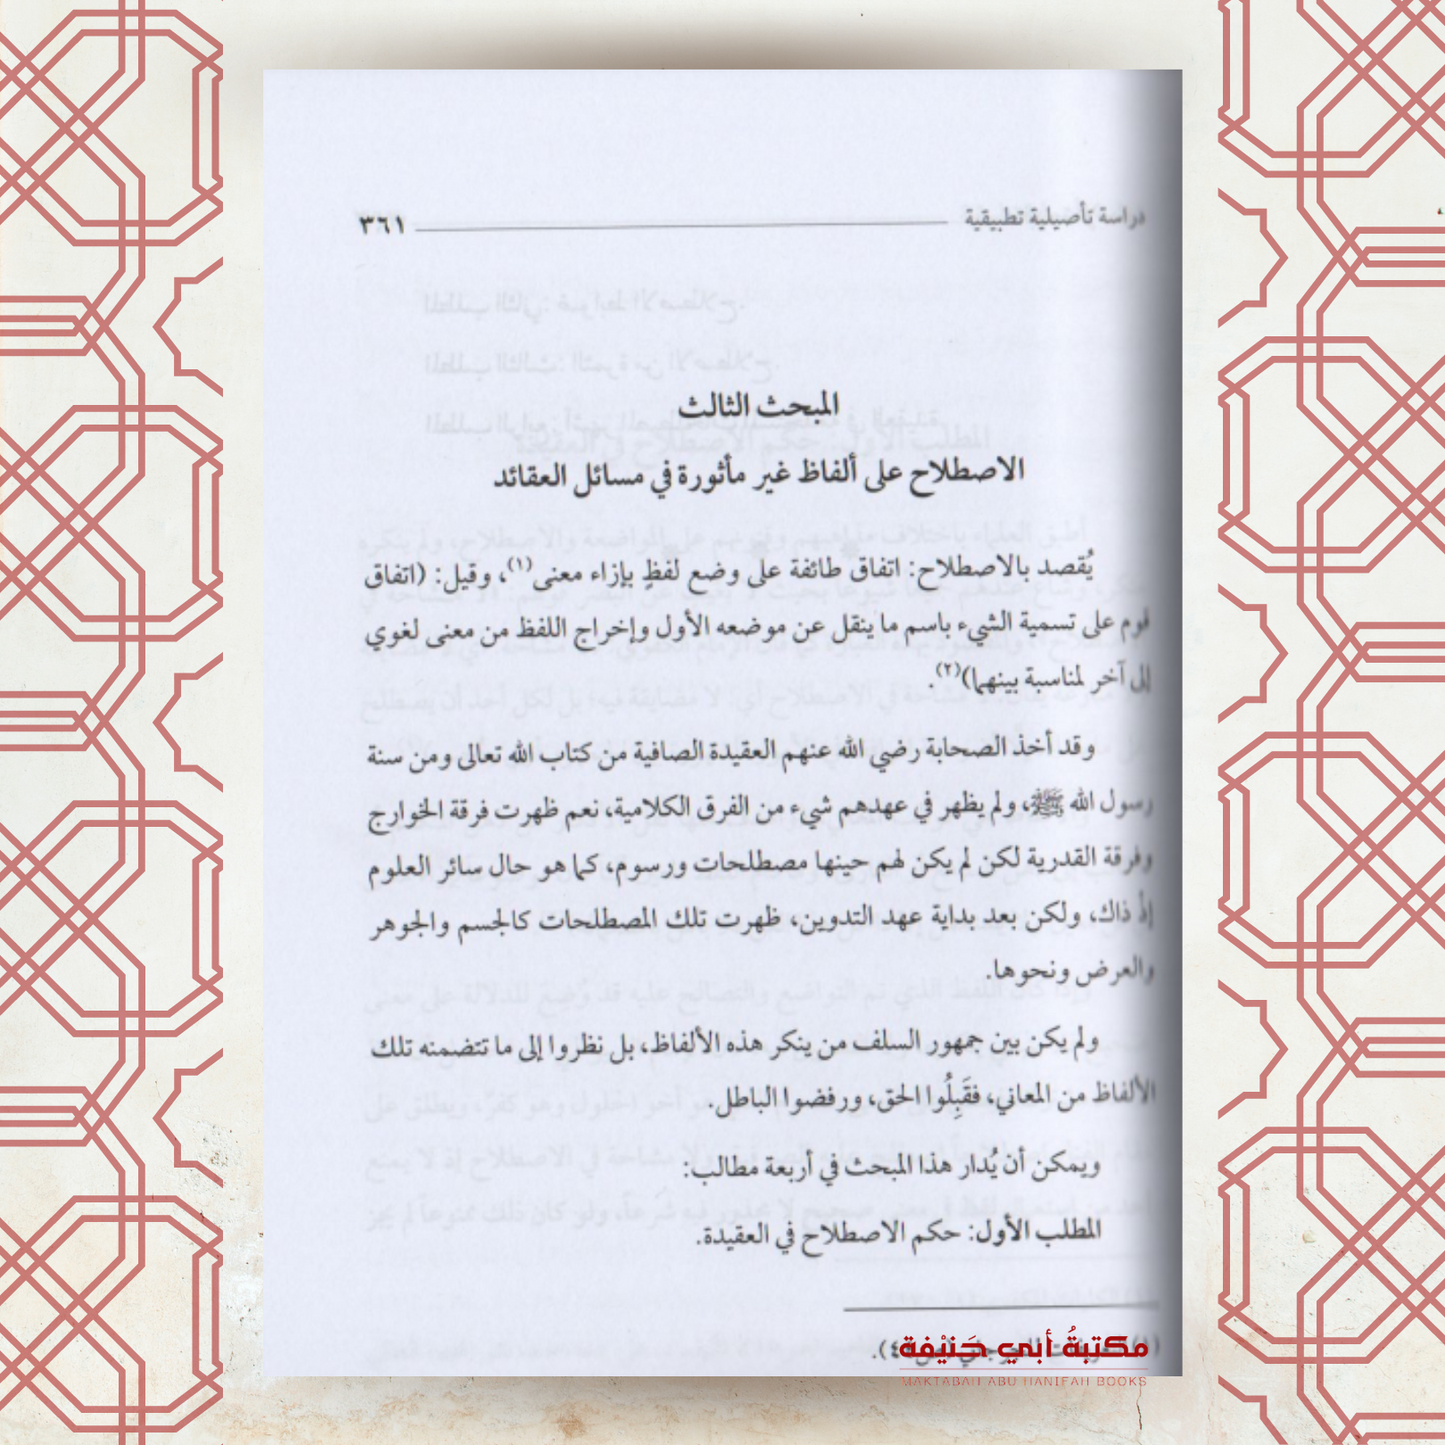 دراسة تأصيلية تطبيقية ٣٦١
المبحث الثالث
الاصطلاح على ألفاظ غير مأثورة في مسائل العقائد
يُقصد بالاصطلاح: اتفاق طائفة على وضع لفظٍ بإزاء معنى(١)، وقيل: (اتفاق
قوم على تسمية الشيء باسم ما ينقل عن موضعه الأول وإخراج اللفظ من معنى لغوي
إلى آخر لمناسبة بينهما)(٢).
وقد أخذ الصحابة رضي الله عنهم العقيدة الصافية من كتاب الله تعالى ومن سنة
رسول الله ﷺ، ولم يظهر في عهدهم شيء من الفرق الكلامية، نعم ظهرت فرقة الخوارج
وفرقة القدرية لكن لم يكن لهم حينها مصطلحات ورسوم، كما هو حال سائر العلوم
إذ ذاك، ولكن بعد بداية عهد التدوين، ظهرت تلك المصطلحات كالجسم والجوهر
والعرض ونحوها.
ولم يكن بين جمهور السلف من ينكر هذه الألفاظ، بل نظروا إلى ما تتضمنه تلك
الألفاظ من المعاني، فقَبِلُوا الحق، ورفضوا الباطل.
ويمكن أن يُدار هذا المبحث في أربعة مطالب:
المطلب الأول: حكم الاصطلاح في العقيدة.
مكتبةُ أبي حَنيْفة
MAKTABAH ABU HANIFAH BOOKS